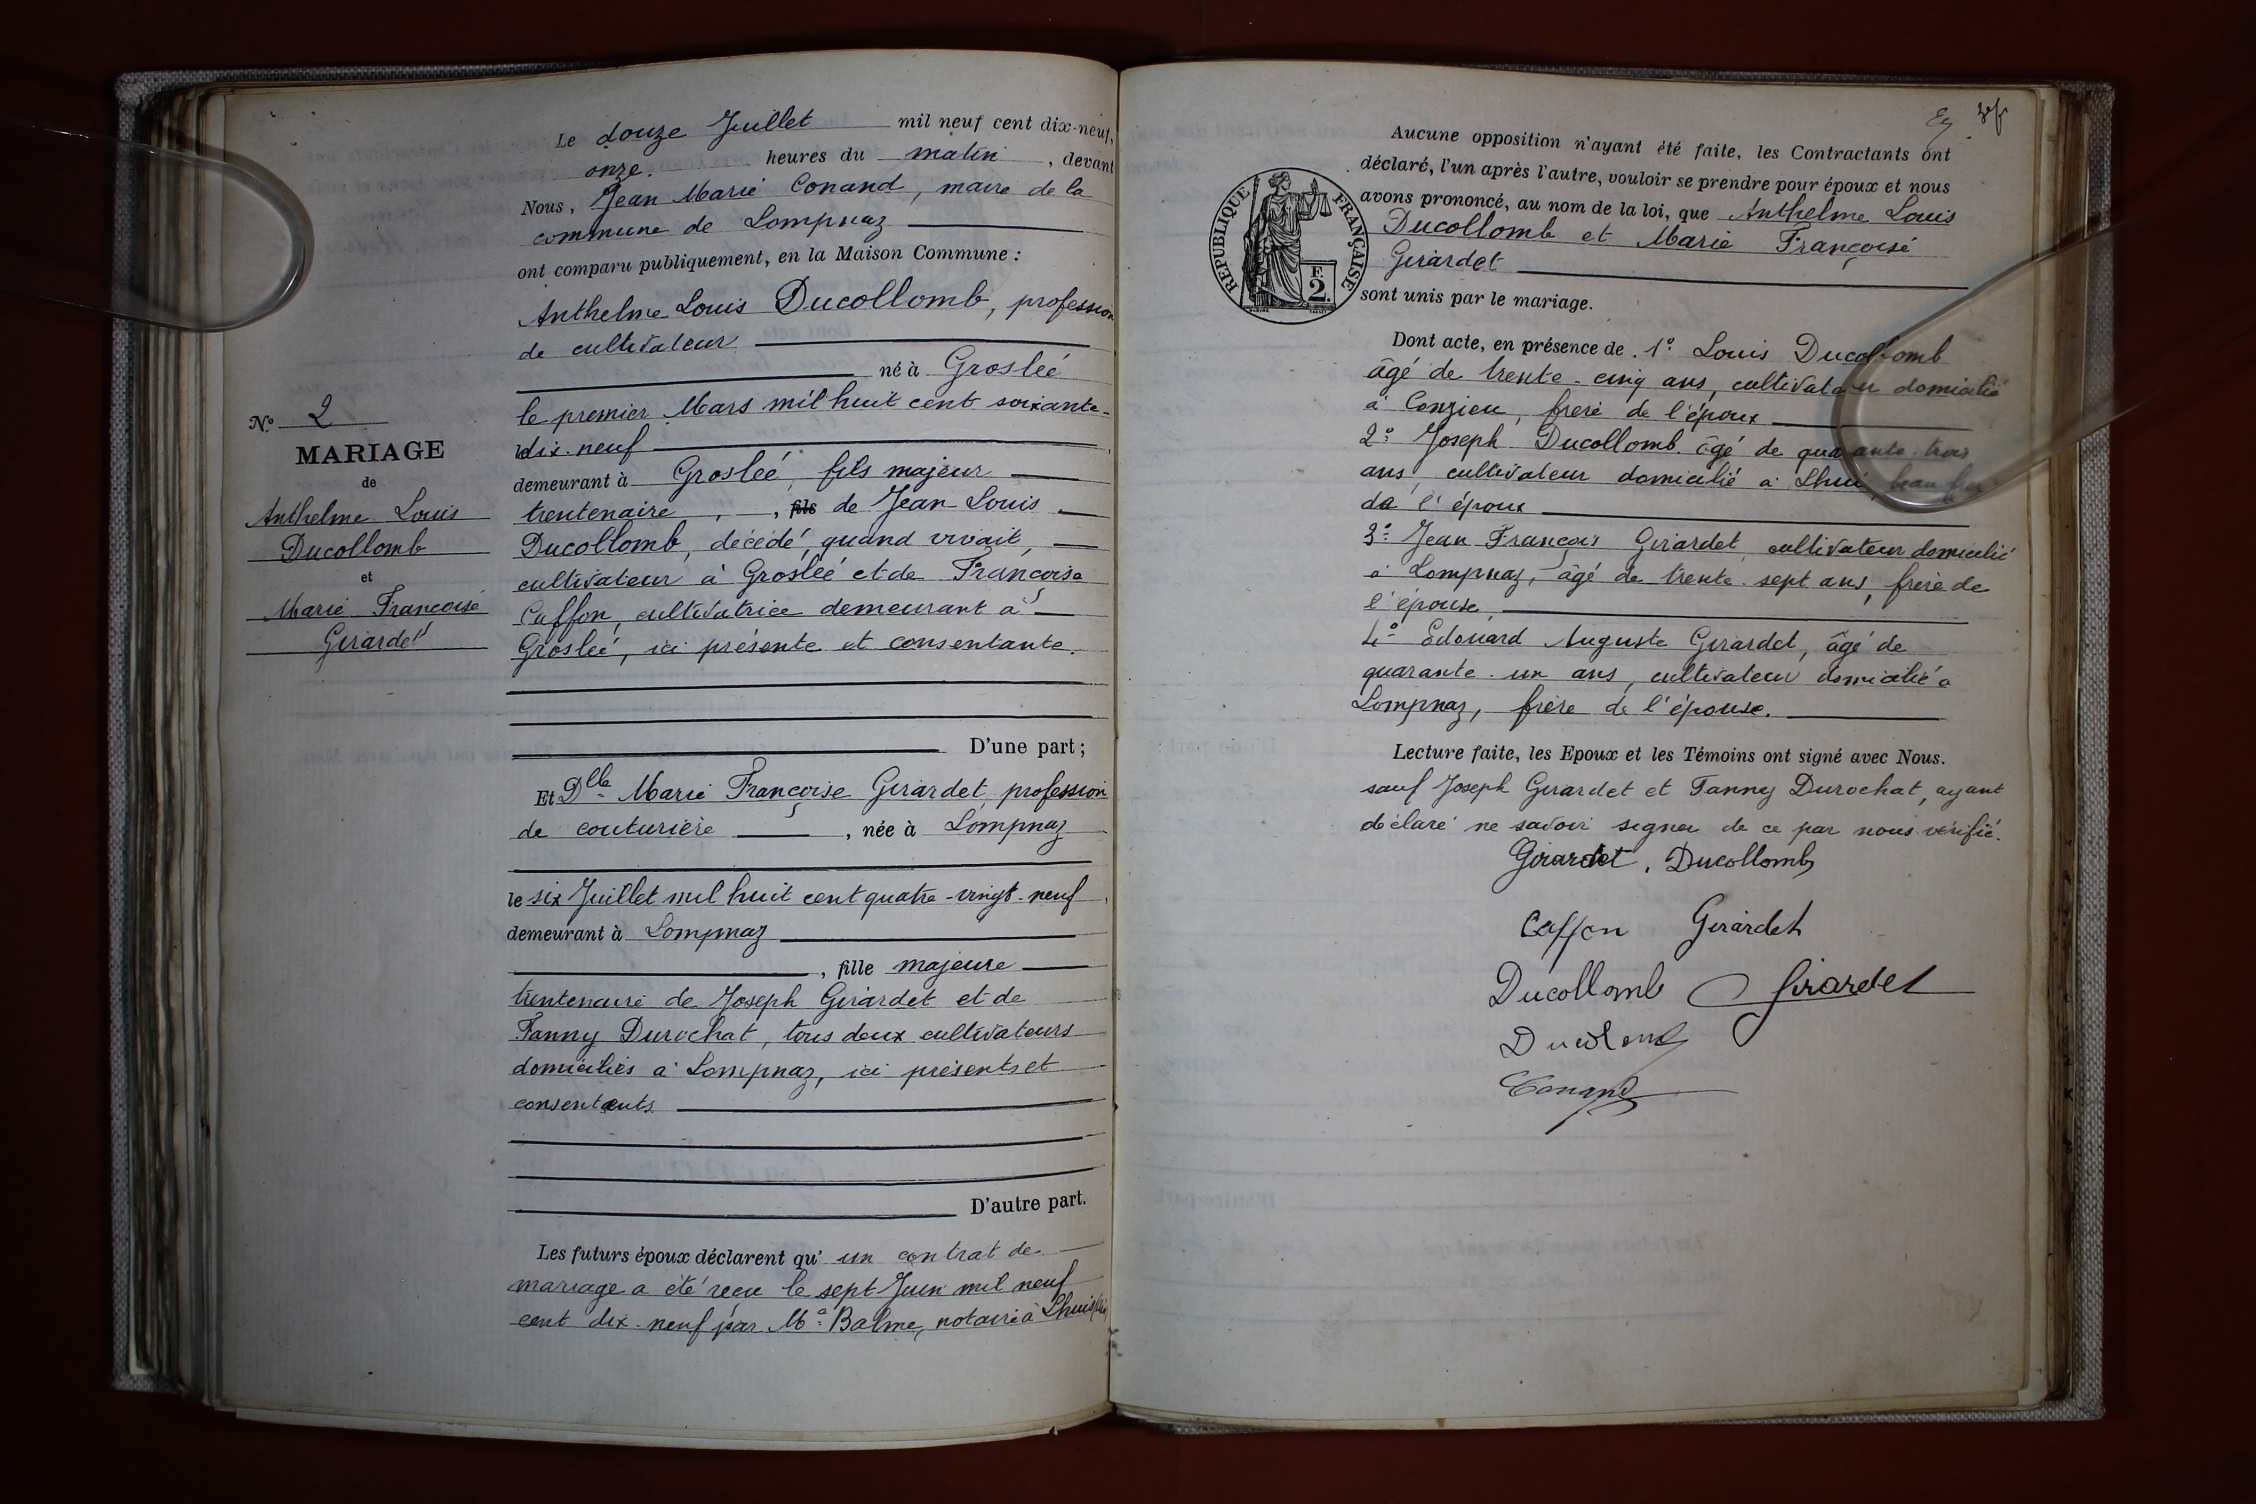 Le douze Juillet mil neuf cent dix-neuf,
onze heures du matin, devant
Nous, Jean Marie Conand, maire de la
commune de Lompnaz
ont comparu publiquement, en la Maison Commune :
Anthelme Louis Ducollomb, profession
de cultivateur
né à Grosleé
le premier Mars mil huit cent soixante-
dix-neuf
demeurant à Grosleé, fils majeur
trentenaire, , fils de Jean Louis
Ducollomb, décédé, quand vivait,
cultivateur à Grosleé et de Françoise
Caffon, cultivatrice demeurant à
Grosleé, ici présente et consentante.
D'une part ;
Et Dlle Marie Françoise Girardet, profession
de couturière, née à Lompnaz
le six Juillet mil huit cent quatre-vingt-neuf
demeurant à Lompnaz
, fille majeure
trentenaire de Joseph Girardet et de
Fanny Durochat, tous deux cultivateurs
domiciliés à Lompnaz, ici présents et
consentants
D'autre part.
Les futurs époux déclarent qu'un contrat de
mariage a été reçu le sept Juin mil neuf
cent dix-neuf par Me Balme, notaire à Lhuis
No 2
MARIAGE
de
Anthelme Louis
Ducollomb
et
Marie Françoise
Girardet
Aucune opposition n'ayant été faite, les Contractants ont
déclaré, l'un après l'autre, vouloir se prendre pour époux et nous
avons prononcé, au nom de la loi, que Anthelme Louis
Ducollomb et Marie Françoise
Girardet
sont unis par le mariage.
REPUBLIQUE FRANÇAISE
F.
2.
Dont acte, en présence de 1° Louis Ducollomb
âgé de trente-cinq ans, cultivateur domicilié
à Conzieu, frère de l'époux
2° Joseph Ducollomb âgé de quarante-trois
ans, cultivateur domicilié à Lhuis, beau
de l'époux
3° Jean François Girardet, cultivateur domicilié
à Lompnaz, âgé de trente-sept ans, frère de
l'épouse
4° Edouard Auguste Girardet, âgé de
quarante-un ans, cultivateur domicilié à
Lompnaz, frère de l'épouse.
Lecture faite, les Epoux et les Témoins ont signé avec Nous.
sauf Joseph Girardet et Fanny Durochat, ayant
déclaré ne savoir signer de ce par nous vérifié.
Girardet. Ducollomb
Caffon Girardet
Ducollomb Girardet
Conand